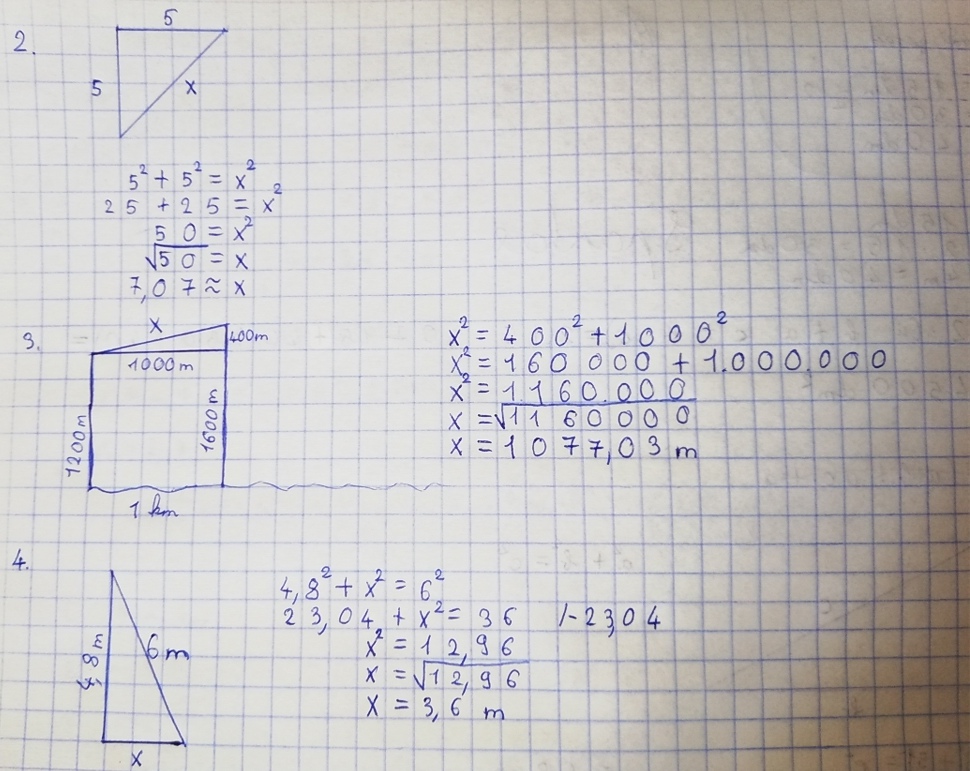 2.
5
5
x
5² + 5² = x²
25 + 25 = x²
50 = x²
√50 = x
7,07 ≈ x
3.
x
400m
1000m
1200m
1600m
1 km
x² = 400² + 1000²
x² = 160 000 + 1.000.000
x² = 1.160.000
x = √1160000
x = 1077,03 m
4.
4,8 m
6 m
x
4,8² + x² = 6²
23,04 + x² = 36 /-23,04
x² = 12,96
x = √12,96
x = 3,6 m